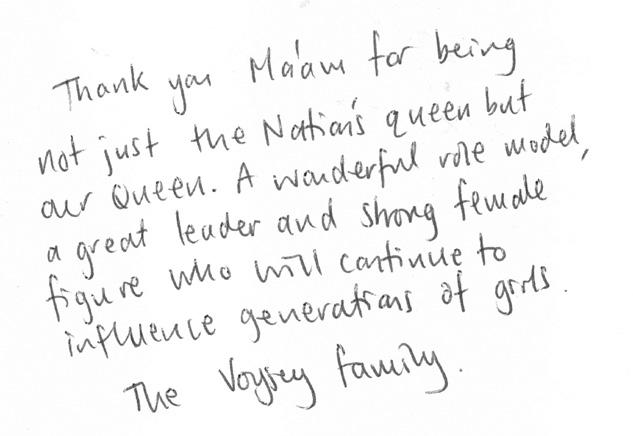 Thank you Ma'am for being
not just the Nation's queen but
our Queen. A wonderful role model,
a great leader and strong female
figure who will continue to
influence generations of girls.
The Voysey family.